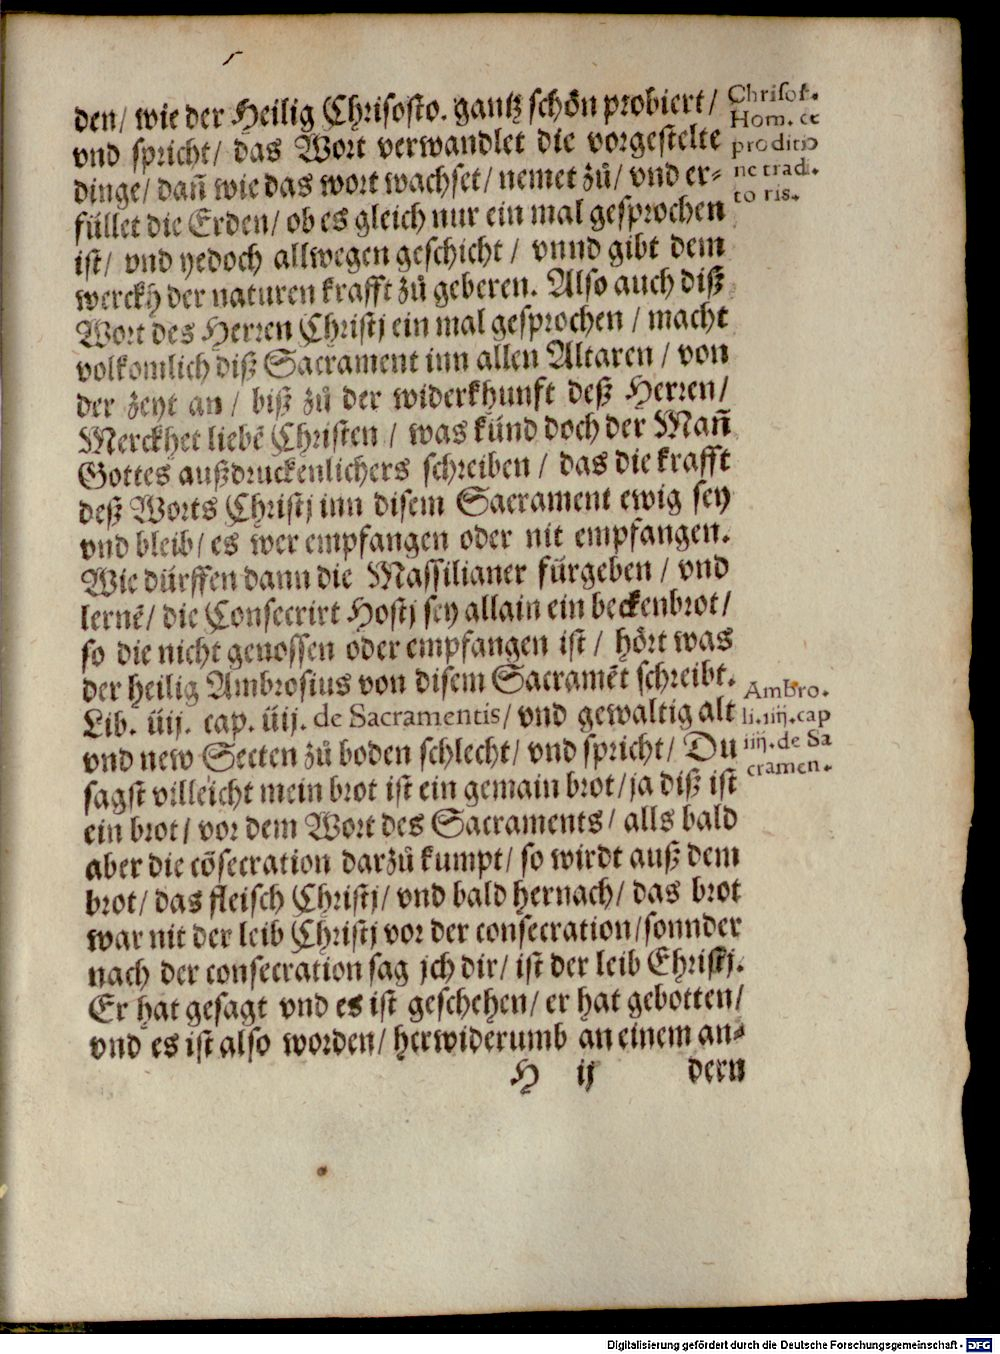 den/ wie der Heilig Chrisosto. gantz schön probiert/
vnd spricht/ das Wort verwandlet die vorgestelte
dinge/ dañ wie das wort wachset/ nemet zů/ vnd er-
füllet die Erden/ ob es gleich nur ein mal gesprochen
ist/ vnd yedoch allwegen geschicht/ vnnd gibt dem
werckh der naturen krafft zů geberen. Also auch diß
Wort des Herren Christj ein mal gesprochen/ macht
volkomlich diß Sacrament inn allen Altaren/ von
der zeyt an/ biß zů der widerkhunft deß Herren/
Merckhet liebẽ Christen/ was künd doch der Mañ
Gottes außdruckenlichers schreiben/ das die krafft
deß Worts Christj inn disem Sacrament ewig sey
vnd bleib/ es wer empfangen oder nit empfangen.
Wie dürffen dann die Massilianer fürgeben/ vnd
lernẽ/ die Consecrirt Hostj sey allain ein beckenbrot/
so die nicht genossen oder empfangen ist/ hört was
der heilig Ambrosius von disem Sacramẽt schreibt.
Lib. iiij. cap. iiij. de Sacramentis/ vnd gewaltig alt
vnd new Secten zů boden schlecht/ vnd spricht/ Du
sagst villeicht mein brot ist ein gemain brot/ ja diß ist
ein brot/ vor dem Wort des Sacraments/ alls bald
aber die cõsecration darzů kumpt/ so wirdt auß dem
brot/ das fleisch Christj/ vnd bald hernach/ das brot
war nit der leib Christj vor der consecration/ sonnder
nach der consecration sag jch dir/ ist der leib Christj.
Er hat gesagt vnd es ist geschehen/ er hat gebotten/
vnd es ist also worden/ herwiderumb an einem an-
H ij dern
Chrisos.
Hom. de
proditio
ne tradi.
to ris.
Ambro.
li. iiij. cap
iiij. de Sa
cramen.
Digitalisierung gefördert durch die Deutsche Forschungsgemeinschaft - DFG